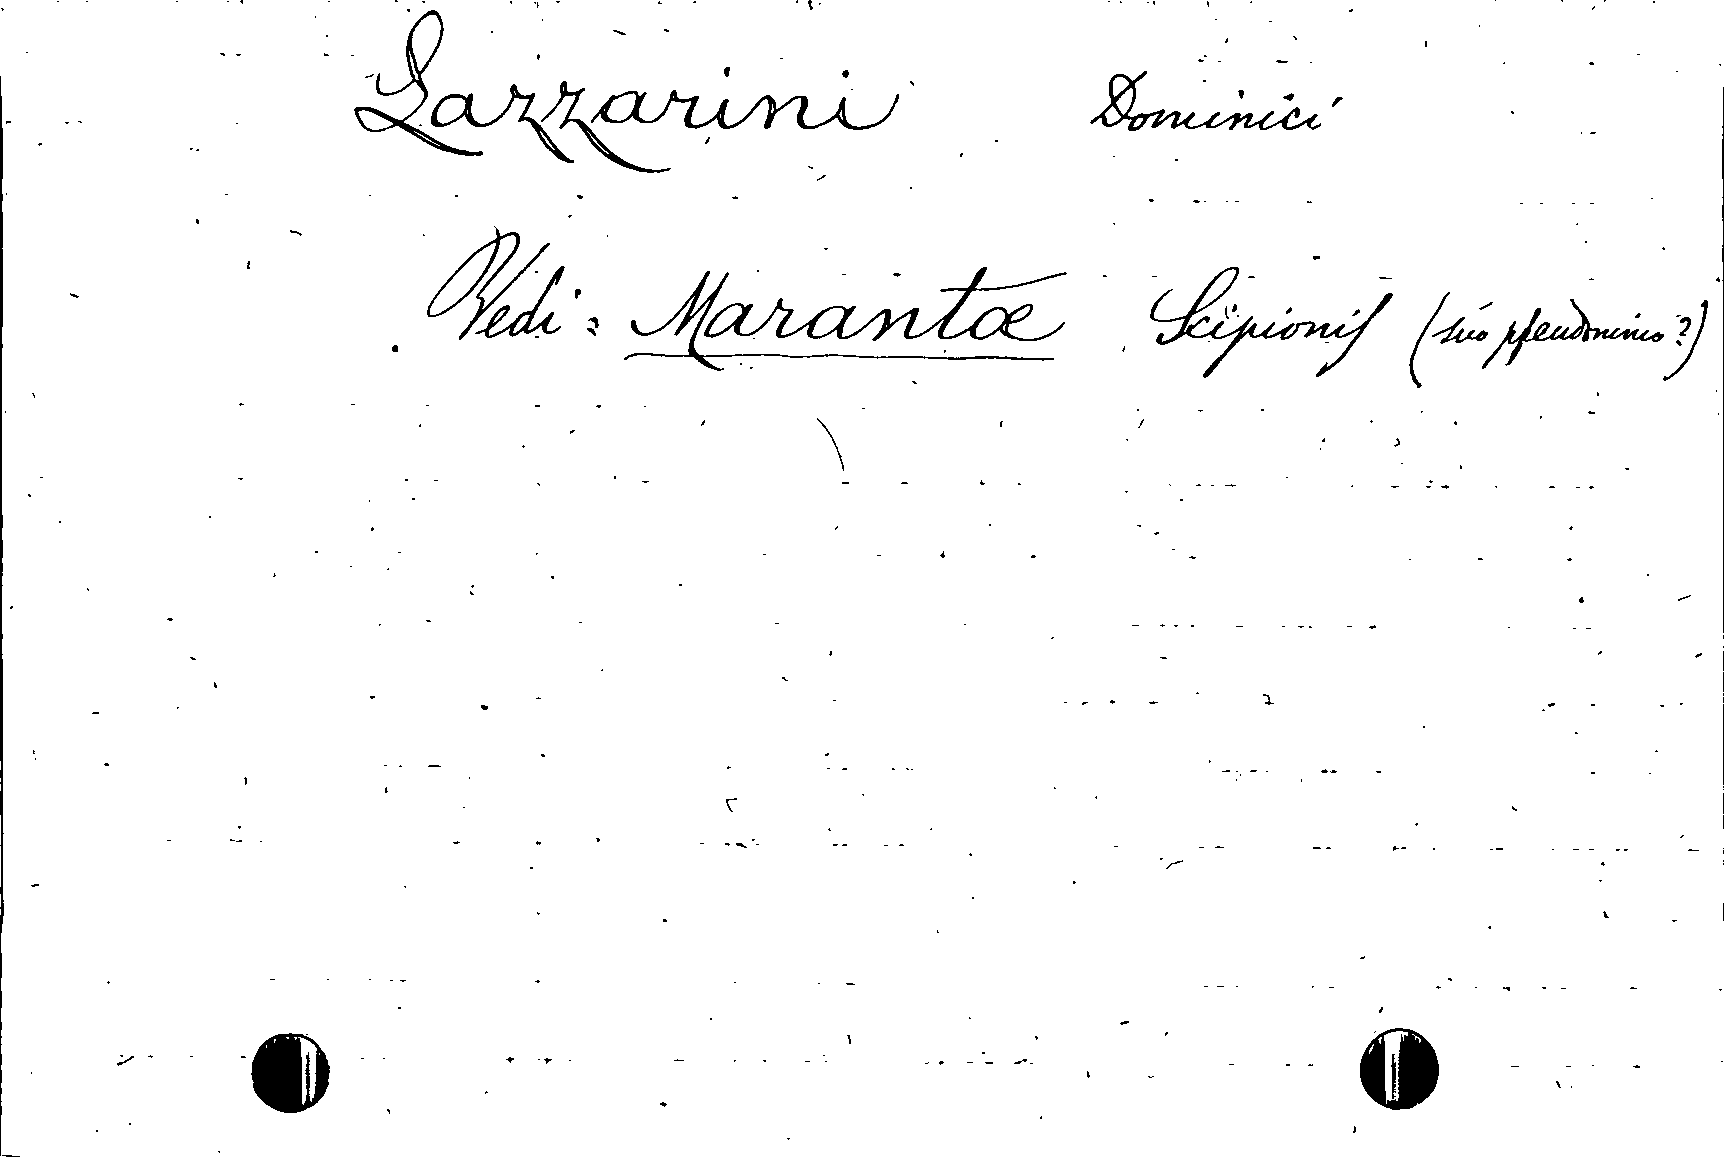 Lazzarini Dominici
Vedi: Marantæ Scipionis (suo pseudonimo?)